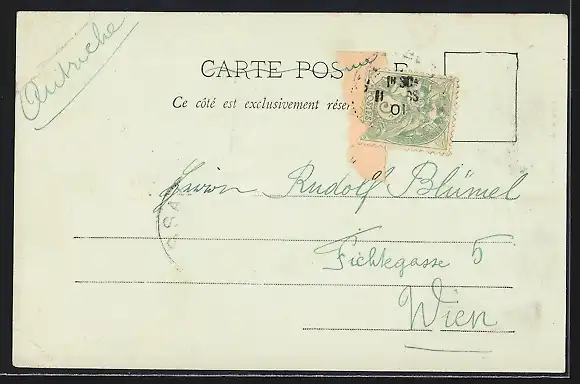 Autriche
CARTE POS E
Ce côté est exclusivement réser
01
Herrn Rudolf Blümel
Fichtegasse 5
Wien